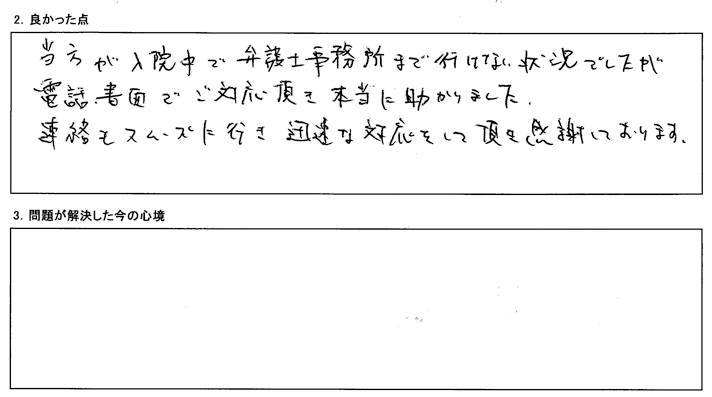 2. 良かった点
当方が入院中で弁護士事務所まで行けない状況でしたが
電話、書面でご対応頂き本当に助かりました。
連絡もスムーズに行き迅速な対応をして頂き感謝しております。
3. 問題が解決した今の心境